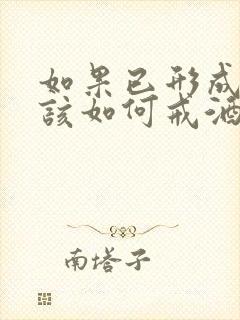 如果已形成
該如何戒酒
南塔子